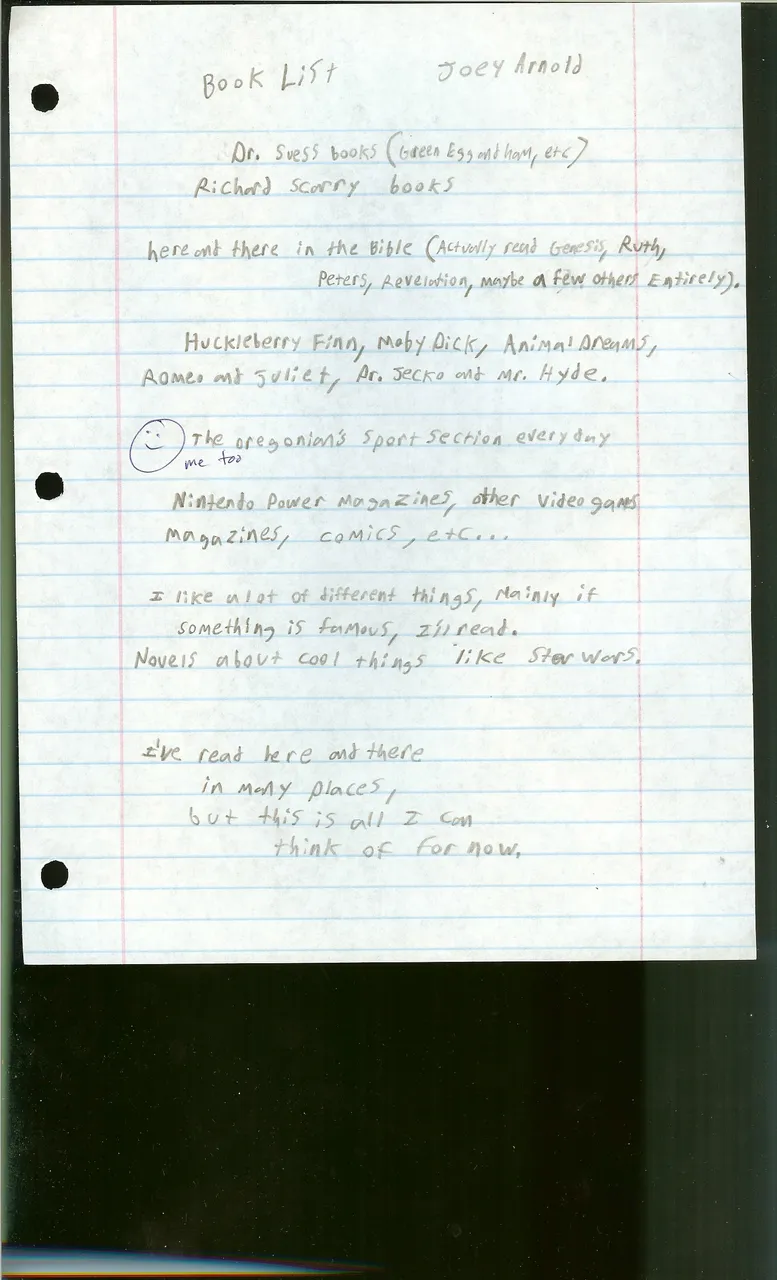 Book List Joey Arnold
Dr. Suess books (Green Egg and ham, etc)
Richard Scarry books
here and there in the Bible (Actually read Genesis, Ruth,
Peters, Revelation, maybe a few others Entirely).
Huckleberry Finn, Moby Dick, Animal Dreams,
Romeo and Juliet, Dr. Jecko and Mr. Hyde.
The oregonian's Sport Section everyday
me too
Nintendo Power magazines, other video games
magazines, comics, etc...
I like a lot of different things, Mainly if
something is famous, I'll read.
Novels about cool things like Star Wars.
I've read here and there
in many places,
but this is all I can
think of for now.